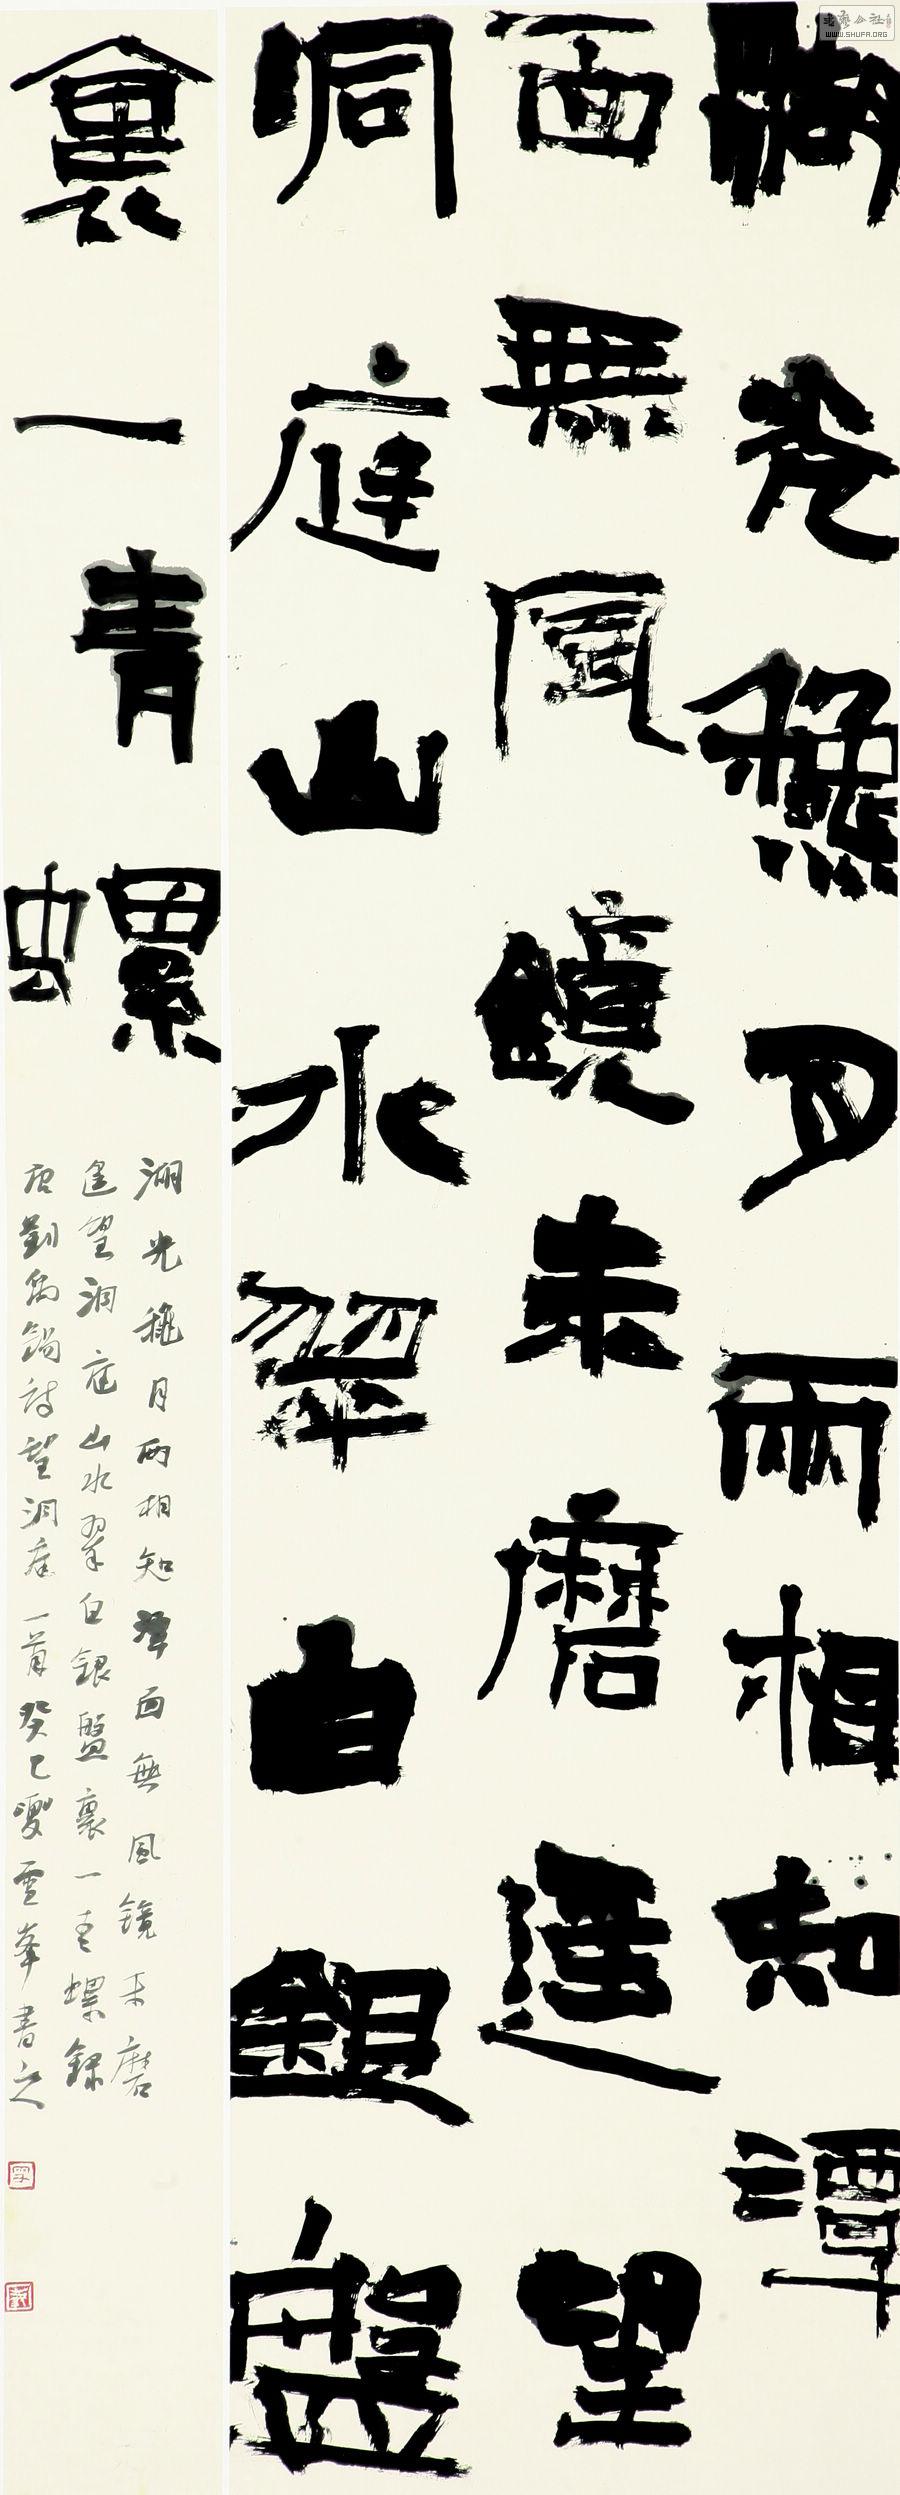 湖光穐月兩相知潭
面無風鏡未磨遥望
洞庭山水翠白銀盤
裏一青螺
湖光穐月兩相知潭面無風鏡未磨
遥望洞庭山水翠白銀盤裏一青螺錄
唐劉禹錫詩望洞庭一首癸巳夏雪峯書之
書法公社
WWW.SHUFA.ORG